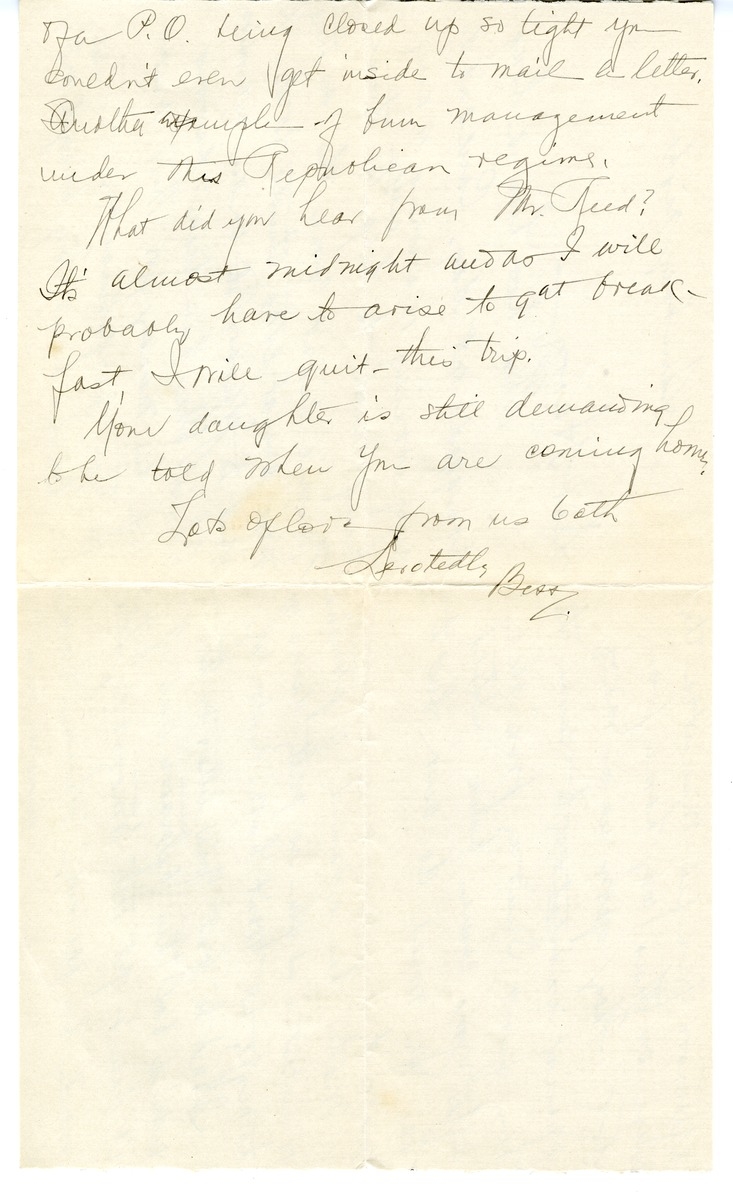 of a P.O. being closed up so tight you
couldn't even get inside to mail a letter.
Another example of bum management
under this Republican regime.
What did you hear from Mr. Reed?
It's almost midnight and as I will
probably have to arise to get break-
fast, I will quit this trip.
Your daughter is still demanding
to be told when you are coming home.
Lots of love from us both
Devotedly
Bess